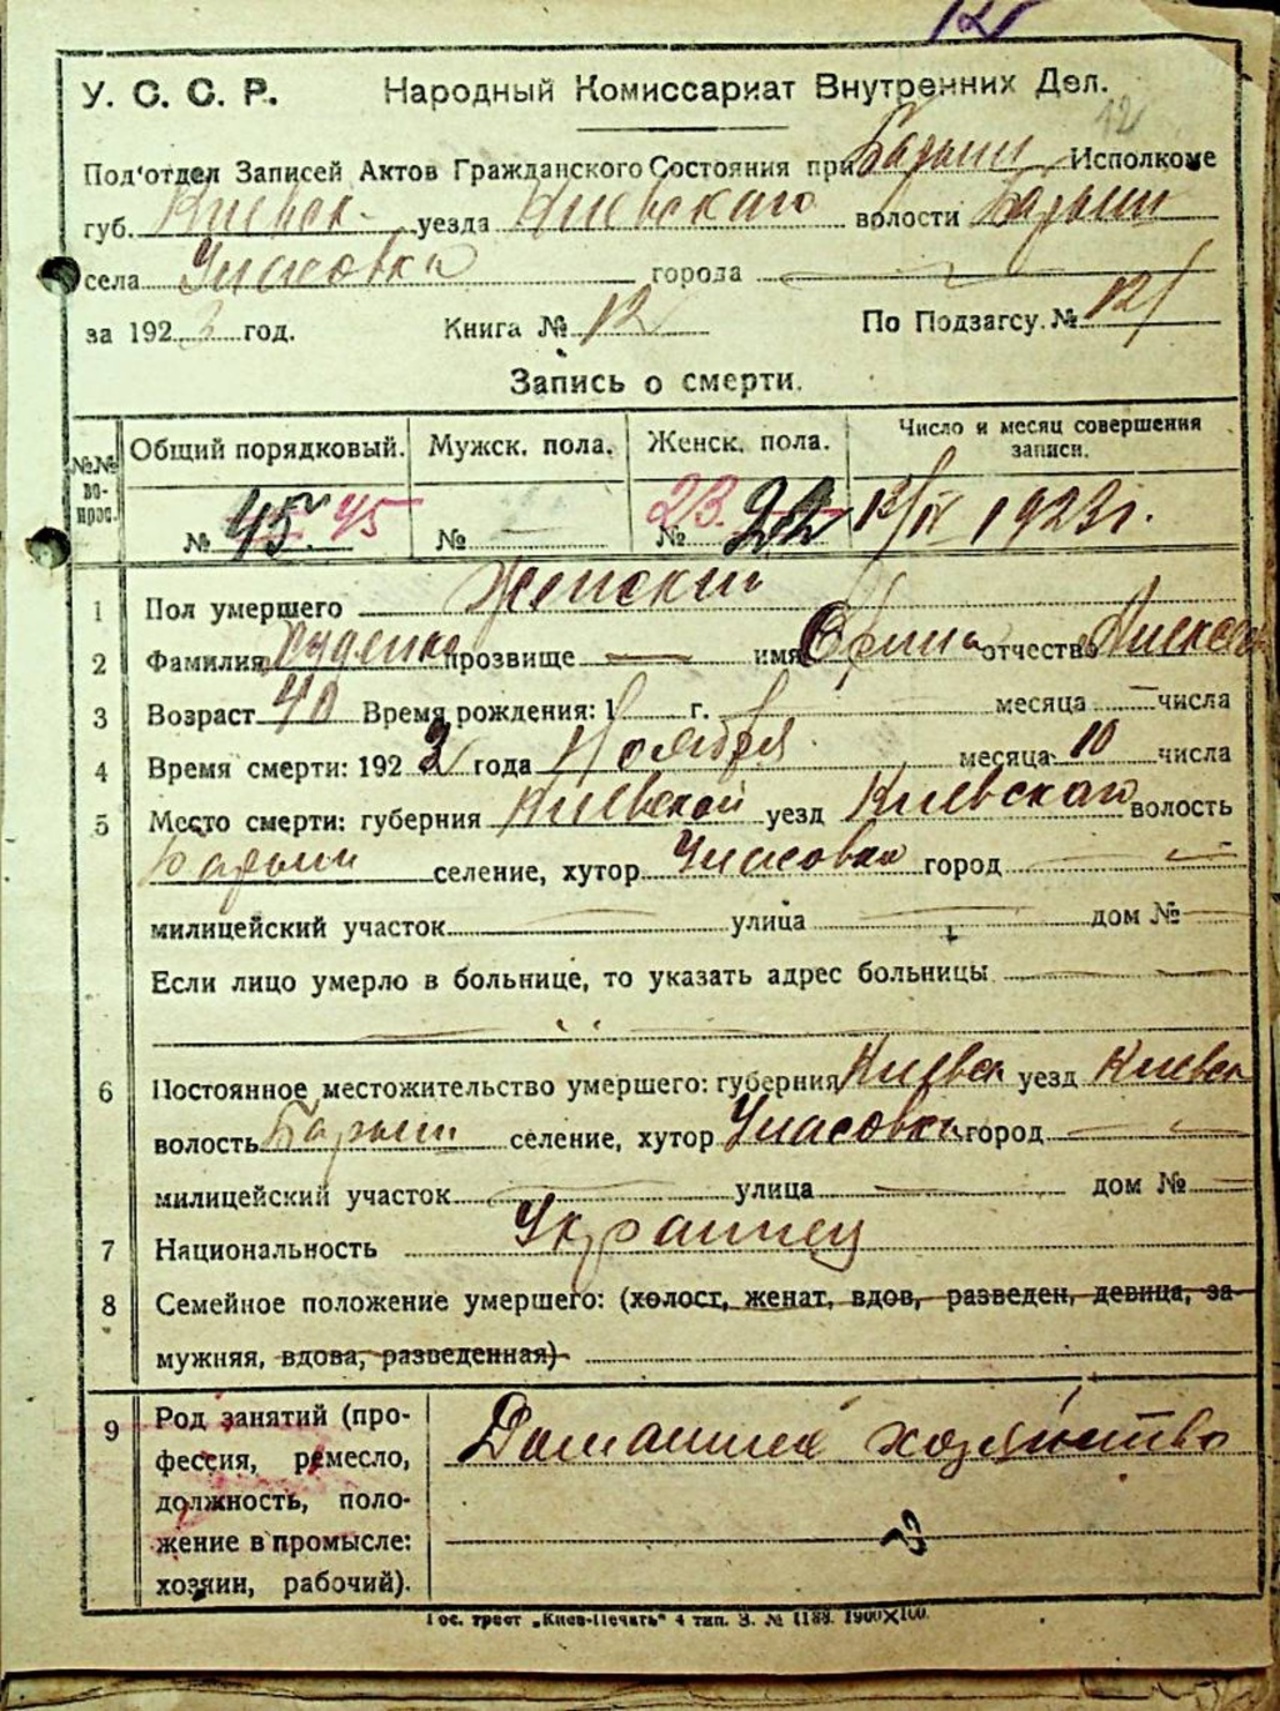 У. С. С. Р. Народный Комиссариат Внутренних Дел.
12
Под'отдел Записей Актов Гражданского Состояния при Барыш Исполкоме
губ. Киевск уезда Киевскаго волости Барыш
села города
за 1923 год. Книга № 12 По Подзагсу. № 12/
Запись о смерти.
№№ вопрос. Общий порядковый. Мужск. пола. Женск. пола. Число и месяц совершения записи.
№ 45. 45 № № 23. 22 12/IV 1923г.
1 Пол умершего Женский
2 Фамилия Руденко прозвище — имя Орина отчество Алексеев
3 Возраст 40 Время рождения: 1 г. месяца числа
4 Время смерти: 1922 года Ноября месяца 10 числа
5 Место смерти: губерния Киевской уезд Киевскаго волость
Барыш селение, хутор город —
милицейский участок — улица — дом № —
Если лицо умерло в больнице, то указать адрес больницы —
6 Постоянное местожительство умершего: губерния Киевск уезд Киевск
волость Барыш селение, хутор город —
милицейский участок — улица — дом № —
7 Национальность Украинец
8 Семейное положение умершего: (холост, женат, вдов, разведен, девица, за-
мужняя, вдова, разведенная)
9 Род занятий (про- Домашнее хозяйство
фессия, ремесло,
должность, поло-
жение в промысле:
хозяин, рабочий).
Гос. трест „Киев-Печать" 4 тип. З. № 1188. 1900×100.